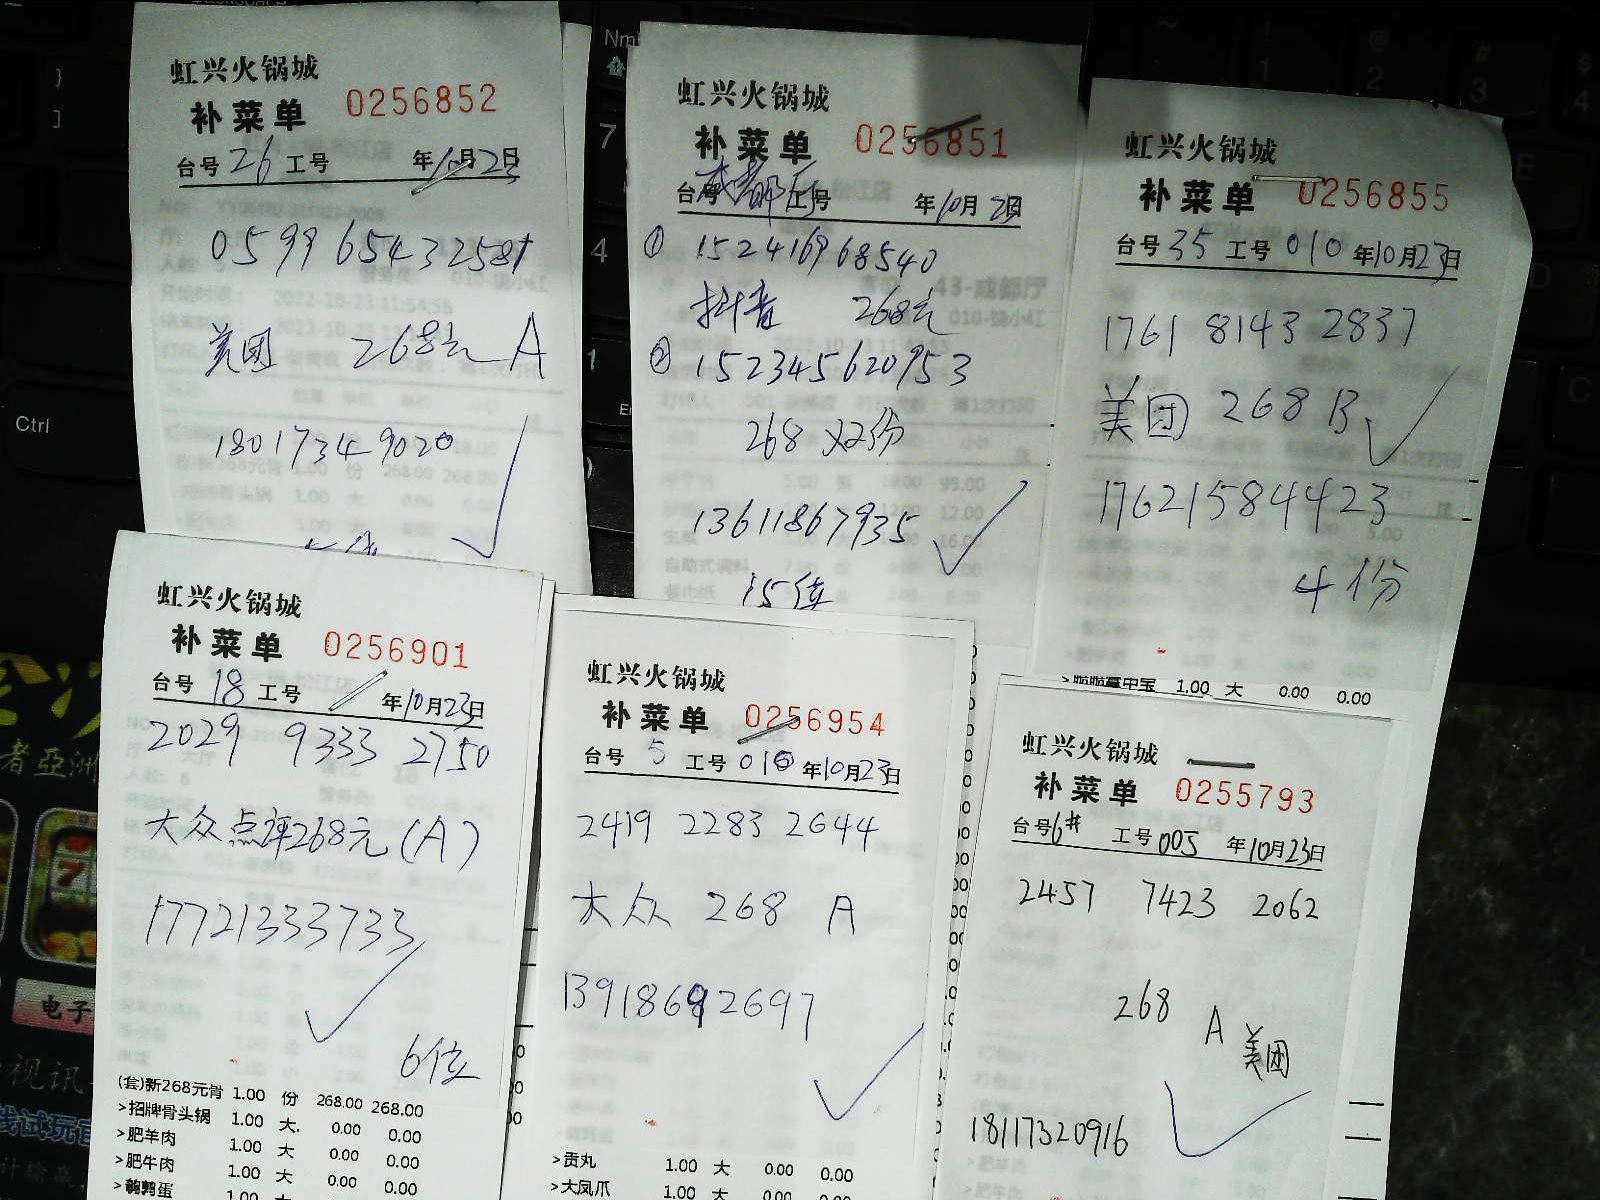 虹兴火锅城
补菜单 0256852
台号 26 工号 年10月23日
美团 268元 A
18017349020
虹兴火锅城
补菜单 0256851
台号 成都厅 工号 年10月23日
① 152416968540
抖音 268元
② 152345620953
268 x2份
13611867935
15位
虹兴火锅城
补菜单 0256855
台号 35 工号 010 年10月23日
1761 8143 2837
美团 268 B
17621584423
4份
>脆脆童中宝 1.00 大 0.00 0.00
虹兴火锅城
补菜单 0256901
台号 18 工号 年10月23日
2029 9333 2750
大众点评268元(A)
17721333733
6位
(套)新268元骨 1.00 份 268.00 268.00
>招牌骨头锅 1.00 大. 0.00 0.00
>肥羊肉 1.00 大 0.00 0.00
>肥牛肉 1.00 大 0.00 0.00
>鹌鹑蛋 1.00 大 0.00 0.00
虹兴火锅城
补菜单 0256954
台号 5 工号 010 年10月23日
2419 2283 2644
大众 268 A
13918692697
>贡丸 1.00 大 0.00 0.00
>大凤爪 1.00 大 0.00 0.00
虹兴火锅城
补菜单 0255793
台号6# 工号 005 年10月23日
2457 7423 2062
268 A 美团
18117320916
Ctrl
电子